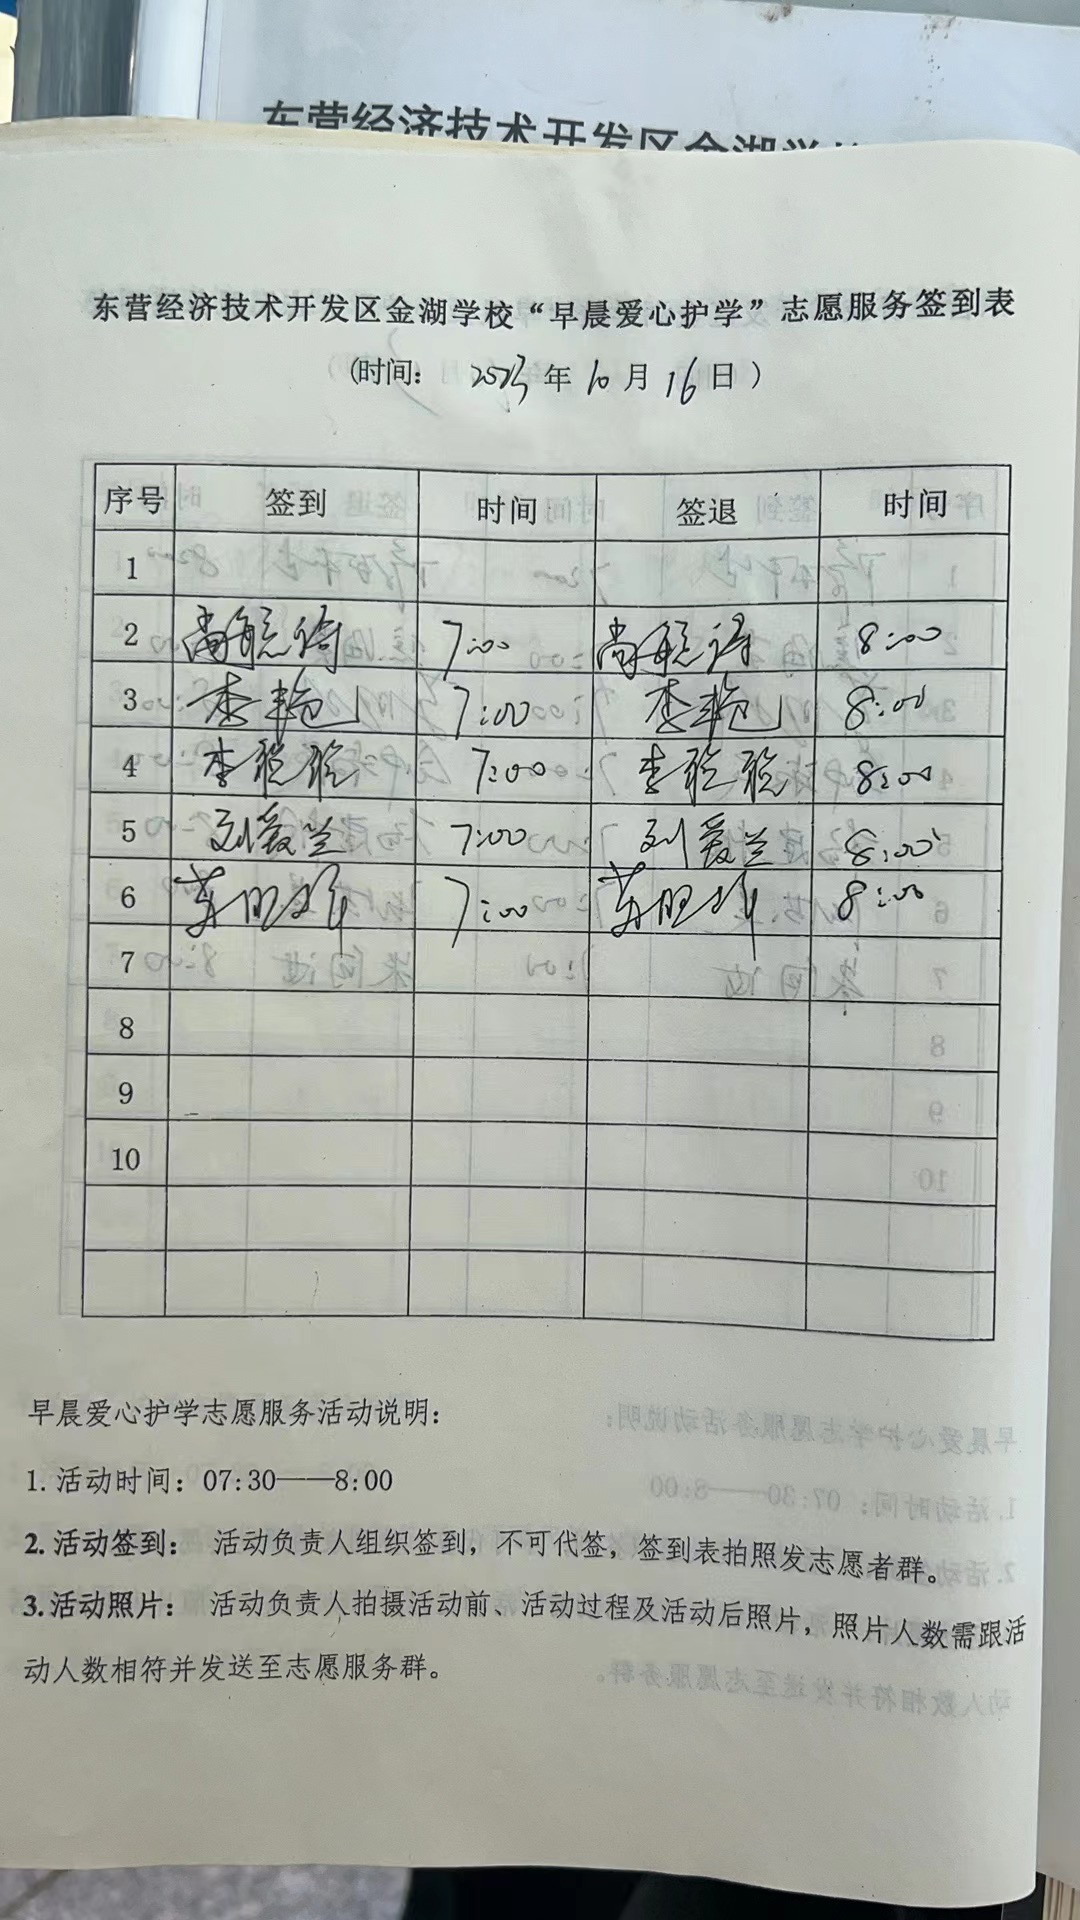 东营经济技术开发区金湖学校
东营经济技术开发区金湖学校“早晨爱心护学”志愿服务签到表
(时间： 2023年10月16日）
序号 签到 时间 签退 时间
1
2 7:00 8:00
3 李艳 7:00 李艳 8:00
4 李聪聪 7:00 李聪聪 8:00
5 刘爱兰 7:00 刘爱兰 8:00
6 7:00 8:00
7
8
9
10
早晨爱心护学志愿服务活动说明：
1. 活动时间：07:30——8:00
2. 活动签到： 活动负责人组织签到，不可代签，签到表拍照发志愿者群。
3. 活动照片： 活动负责人拍摄活动前、活动过程及活动后照片，照片人数需跟活
动人数相符并发送至志愿服务群。